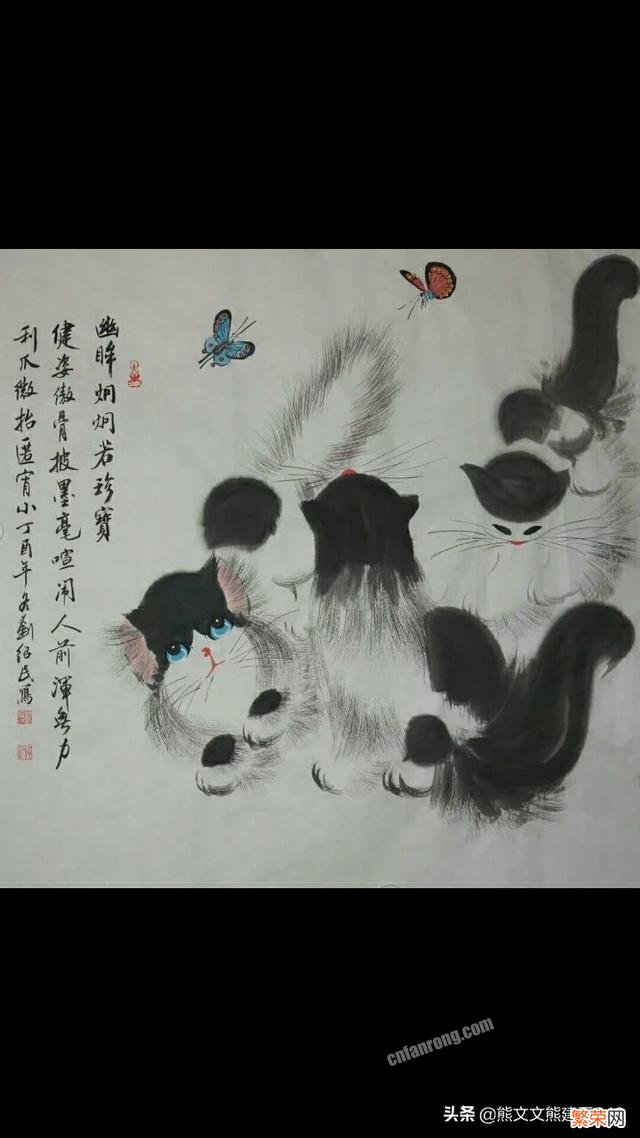 幽眸炯炯若珍寶
健姿傲骨披墨毫喧闹人前渾無力
利爪微抬匿宵小丁酉年冬劉绍民寫
cnfanrong.com
头条 @熊文文熊建
繁荣网